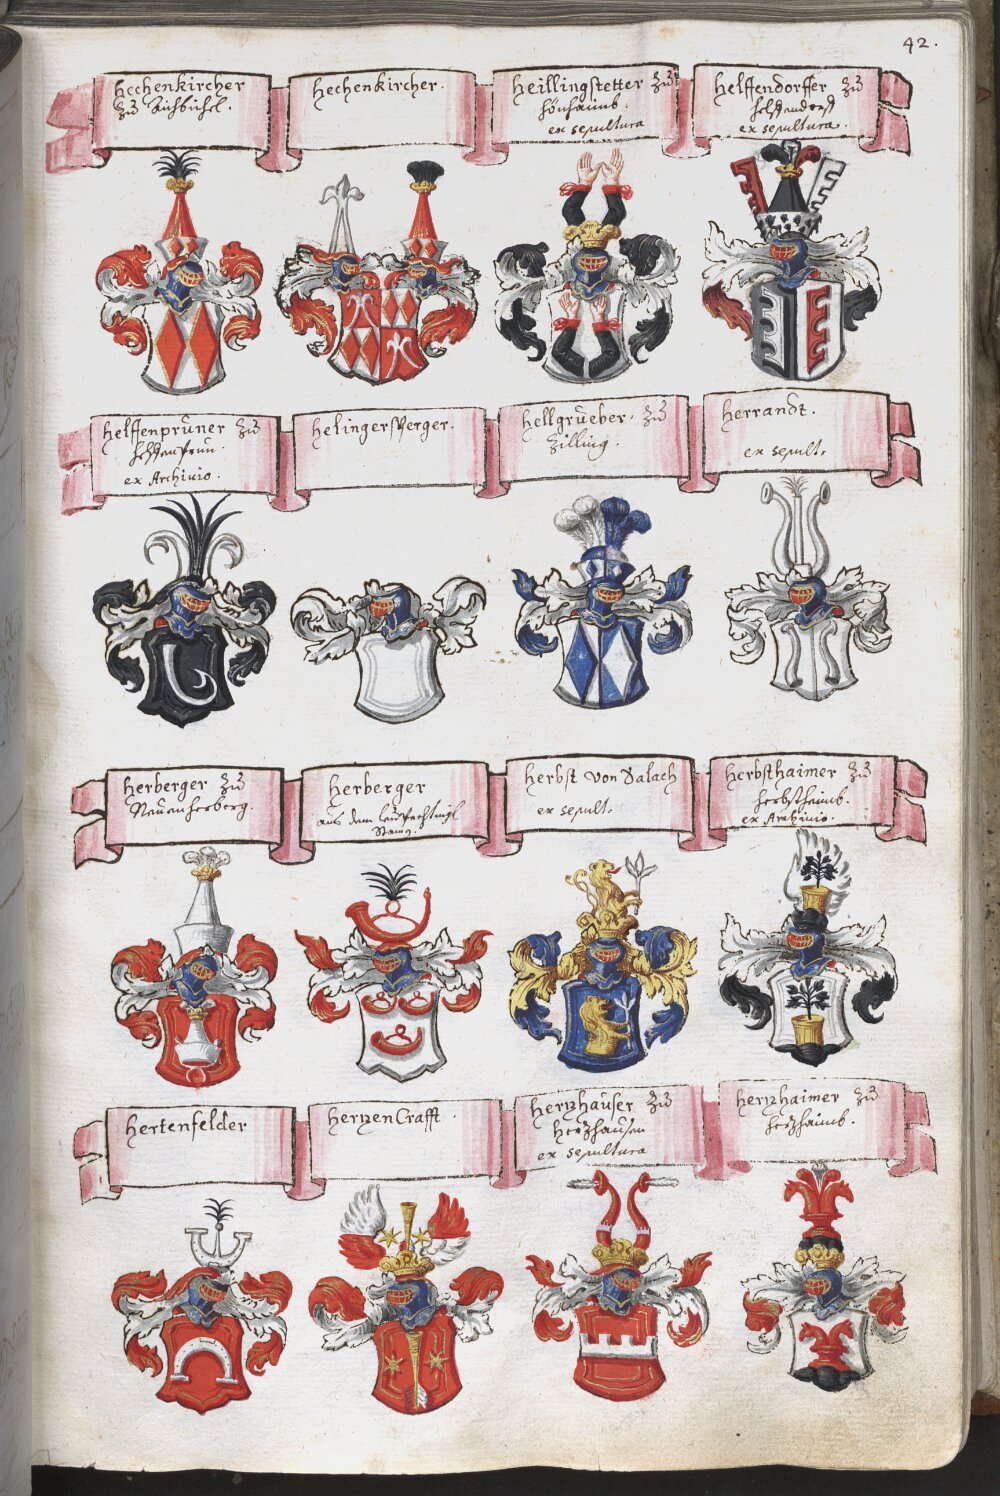 42.
Hechenkircher
zů Aichbichel.
Hechenkircher.
Heillingstetter zů
hönhaimb.
ex sepultura
Helffendorffer zů
helffendorff
ex sepultura.
Helffenprůner zů
helffenprun.
ex Archivio.
Helingersperger.
Hellgrůeber. zů
Zilling.
Herrandt.
ex sepult.
Herberger zů
Neuenherberg.
Herberger
aus dem
Herbst von Salach
ex sepult.
Herbsthaimer zů
herbsthaimb.
ex Archivio.
Hertenfelder
Herzen Crafft.
Herzhaůser zů
herzhausen
ex sepultura
Herzhaimer zů
herzhaimb.